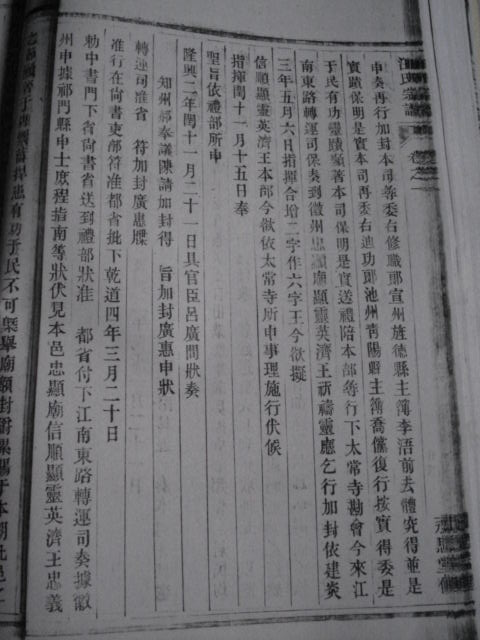 汪氏宗譜
卷之二
申奏再行加封本司等委右修職郎宣州旌德縣主簿李浯前去體究得並是
實蹟保明是實本司再委右迪功郎池州青陽縣主簿喬儻復行按實得委是
于民有功靈蹟顯著本司保明是實送禮陪本部等行下太常寺勘會今來江
南東路轉運司保奏到徽州忠顯廟顯靈英濟王祈禱靈應乞行加封依建炎
三年五月六日指揮合增二字作六字王今欲擬
信順顯靈英濟王本部今欲依太常寺所申事理施行伏候
指揮閏十一月十五日奉
聖旨依禮部所申
隆興二年閏十一月二十一日具官臣呂廣問狀奏
知州郝奉議陳請加封得　旨加封廣惠申狀
轉運司准省　符加封廣惠牒
准行在尚書吏部符准都省批下乾道四年三月二十日
勅中書門下省尚書省送到禮部狀准　都省付下江南東路轉運司奏據徽
州申據祁門縣申士庶程指南等狀伏見本邑忠顯廟信順顯靈英濟王忠義
患有功于民不可槩舉廟額封爵累賜于本朝